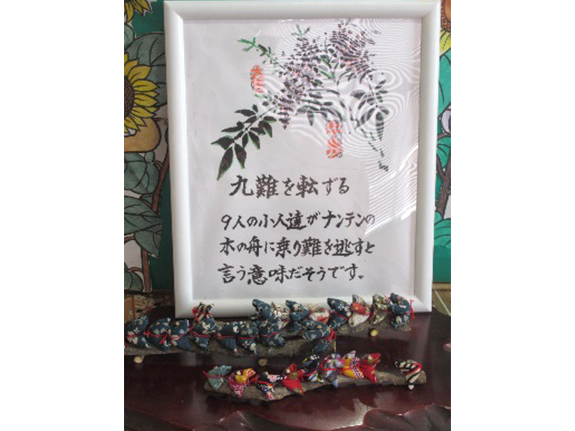 九難を転ずる
9人の小人達がナンテンの
木の舟に乗り難を逃すと
言う意味だそうです。